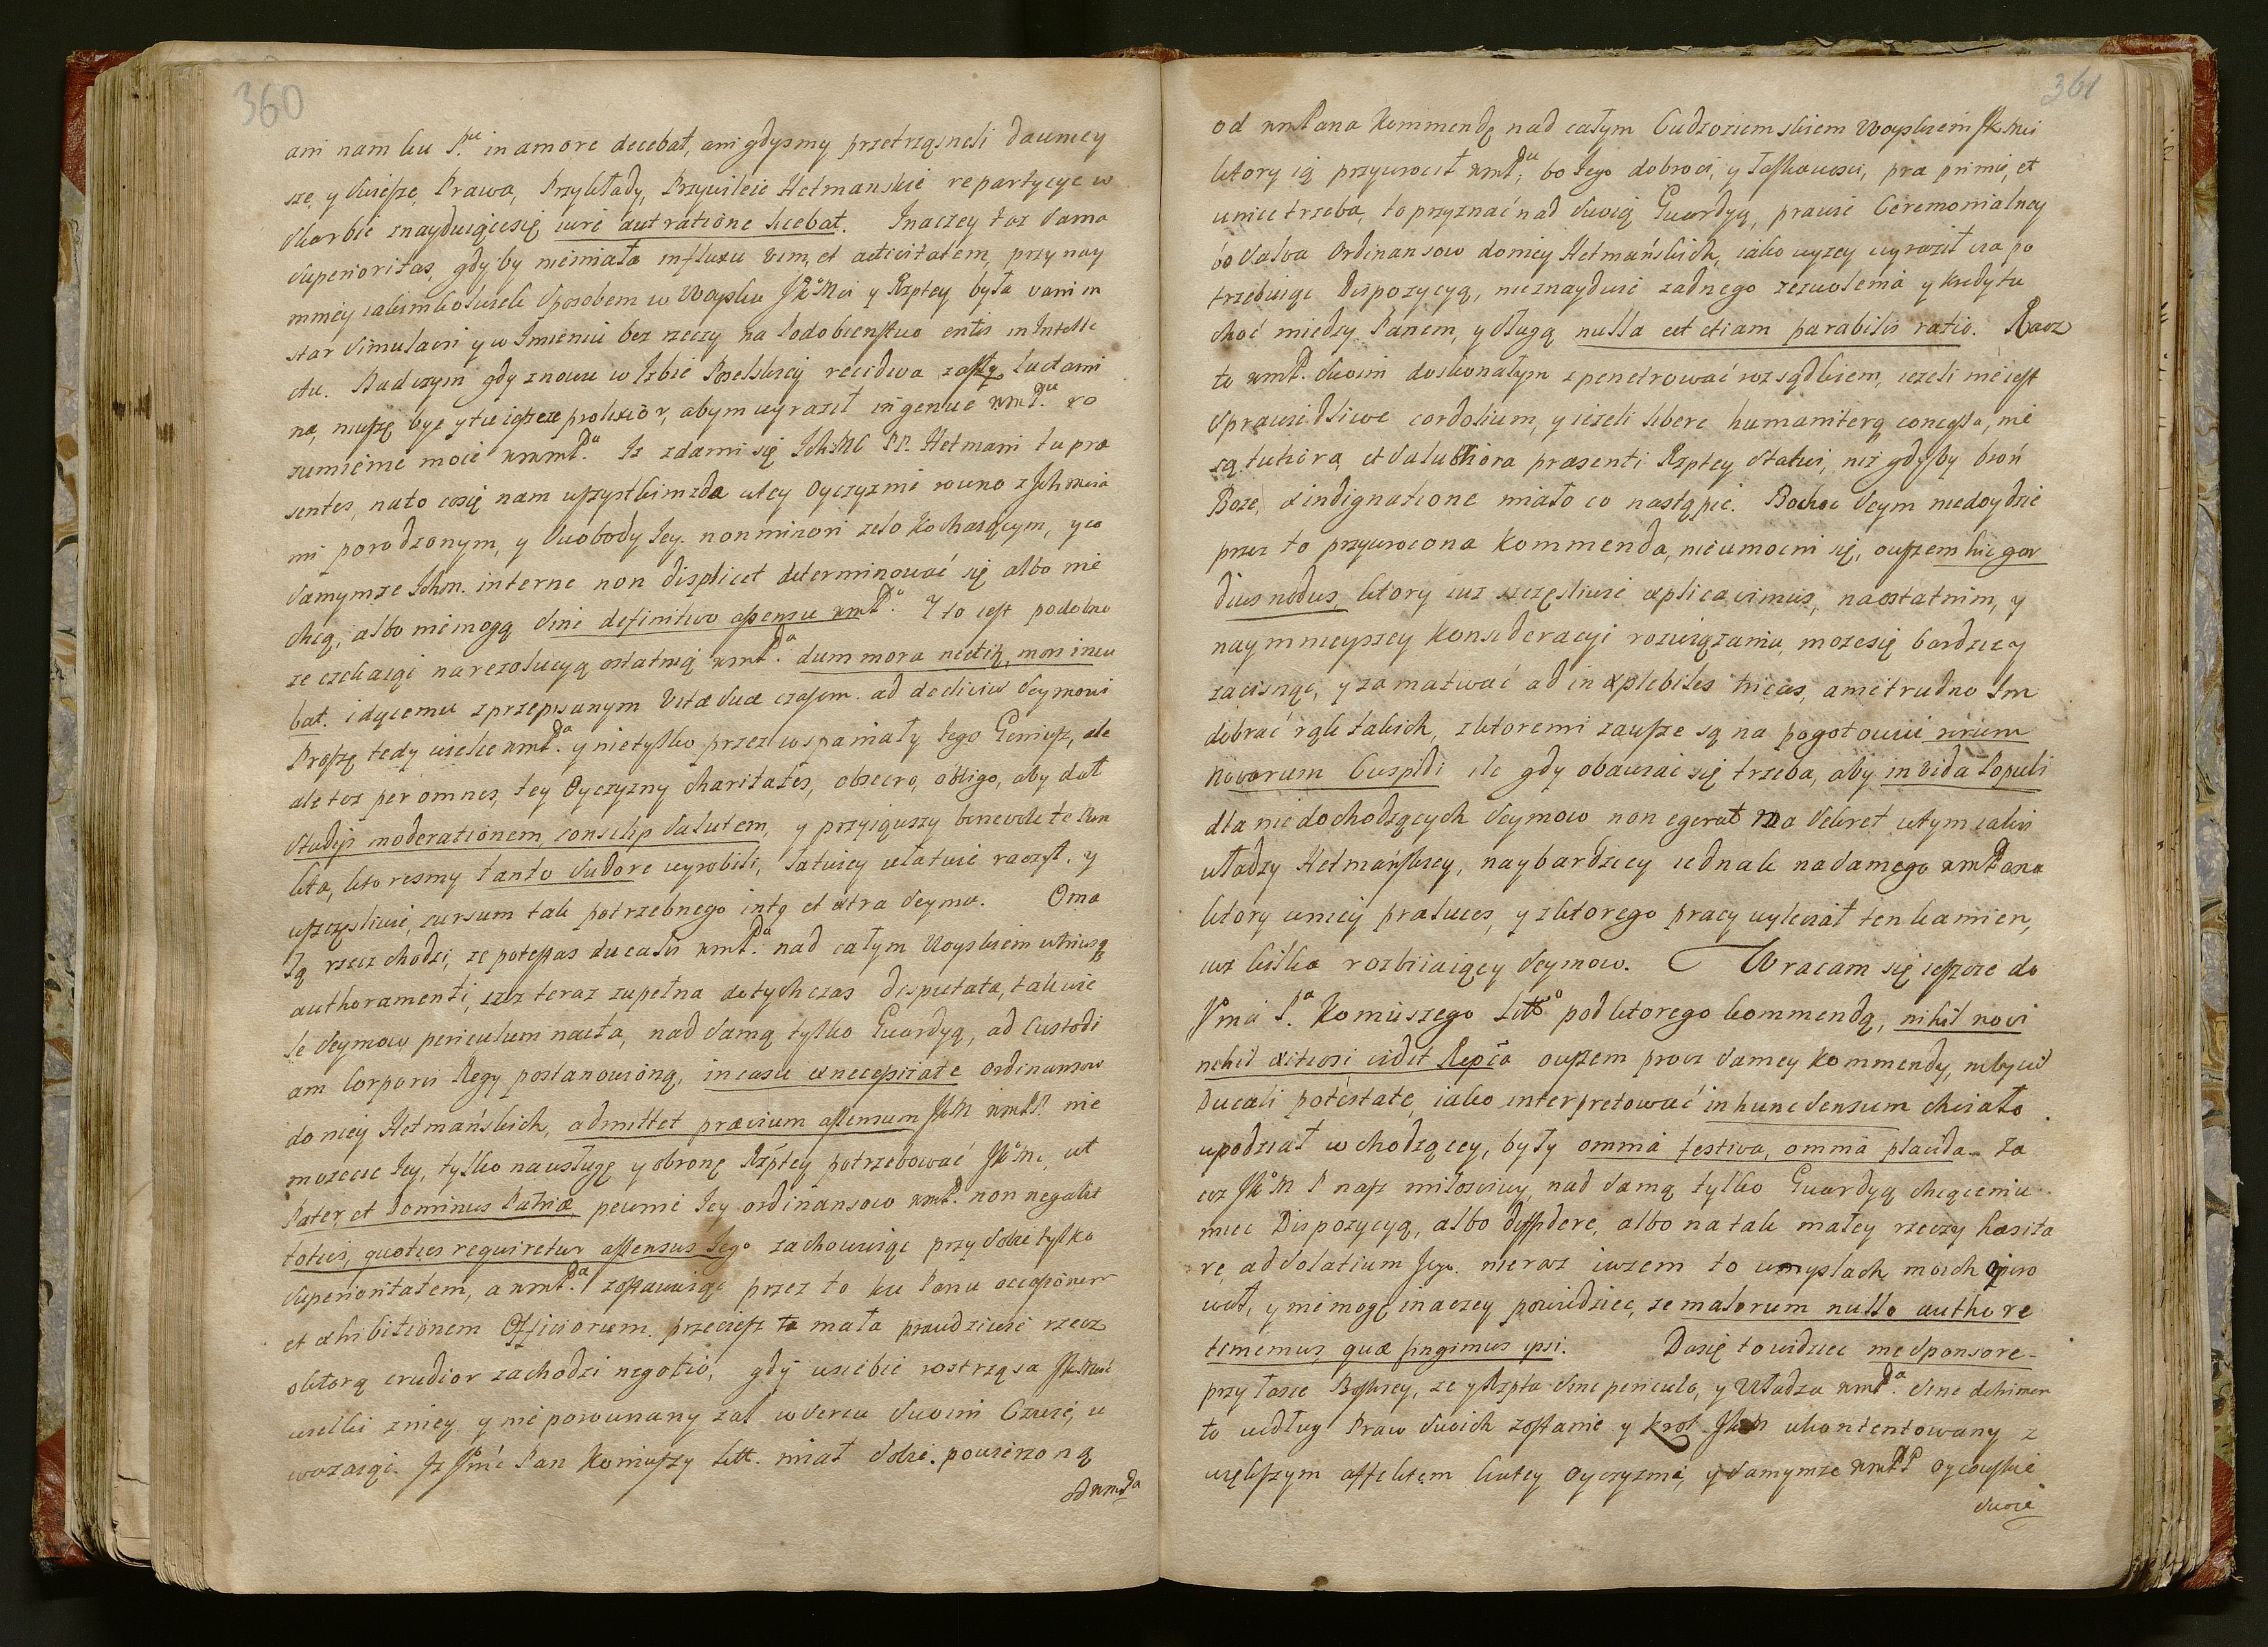 360
ani nam ku P.nu in amore decebat, ani gdysmy przetrząsneli dawniey
sze, y swieże, Prawa, Przykłady, Przywileie Hetmanskie repartycye w
Skarbie znayduiącesię iure aut ratione licebat. Inaczey taż sama
Superioritas, gdyby niemiała influxu vim, et activitatem, przynay
mniey iakimkolwiek sposobem w Woysku JKoMci y Rzptey była vani in
star simulacri y w Imieniu bez rzeczy na Podobienstwo entis in Intelle
ctu. Nad czym gdy znowu w Izbie Poselskiey recidiva zaszła luctami
na, muszę bydz y tu ieszcze prolixior, abym wyraził ingenue wmPdu ro
zumienie moie wmmPda. Iż zdami się IchMC PP. Hetmani tu præ
sentes, na to cosię nam wszystkim zda wtey Oyczyznie rowno z Ichmcia
mi porodzonym, y swobody Iey. non minori zelo kochaiącym, y co
samymże Ichm. interne non displicet determinować się albo nie
chcą, albo niemogą sine definitivo assensu wmPa. Y to iest podobno
ze czekaiąc na rezolucyą ostatnią wmPda. dum mora nectit, mors incu
bat. idącemu z przepisanym vitæ suæ czasem ad declivia Seymowi
Proszę tedy wielce wmPda. y nietylko przez wspaniały Iego Geniusz, ale
ale też per omnes, tey Oyczyzny charitates, obsecro, obligo, aby dał
studijs moderationem, consilijs salutem, y przyiąwszy benevole te Pun
kta, ktoresmy tanto sudore wyrobili, łatwiey ułatwić raczył. y
uszczęsliwić, cursum tak potrzebnego intra et extra Seymu. Oma
łą rzecz chodzi, ze potestas ducalis wmPda. nad całym Woyskiem utriusq
authoramenti, czyż teraz zupełna dotychczas disputata, tak wie
le Seymow periculum nacta, nad samą tylko Gwardyą, ad Custodi
am Corporis Regij postanowioną, in casu exnecessitate Ordinansow
do niey Hetmańskich, admittet prævium assensum JKM wmPP. nie
możecie Iey, tylko na usługę y obronę Rzptey potrzebować JKoMć, ut
Pater et Dominus Patriæ, pewnie Iey ordinansow wmPP. non negabit
toties, quoties requiretur assensus Iego zachowuiąc przy sobie tylko
superioritatem, a wmPda. zostawuiąc przez to ku Panu occasionem
et exhibitionem Officiorum. przeciesz ta mała prawdziwie rzecz
oktorą crudior zachodzi negotio, gdy usiebie rostrząsa JKMość
wielki zniey y nie porownany zal w sercu swoim Czuię, u
wazaiąc. Iż JMć Pan Koniuszy Litt. miał sobie powierzoną
od wmPda
361
od wmPana Kommendę nad całym Cudzoziemskiem Woyskiem JKMci
ktory ią przywrocił wmPdu, bo Iego dobroci, y łaskawosci, præ primis, et
unice trzeba, to przyznać nad swoią Gwardyą, prawie Ceremonialney
bo salva Ordinansow do niey Hetmańskich, iako wyzey wyraził się po
trzebuiąc Dispozycyą, nie znayduie zadnego zezwolenia y Kredytu
choć miedzy Panem, y sługą nulla est etiam parabilis ratio. Racz
to wmP. swoim doskonałym zpenetrować rozsądkiem, iezeli nie iest
sprawiedliwe cordolium, y iezeli libere humaniterq concessa, nie
są tutiora, et salubriora præsenti Rzptey statui, niz gdyby broń
Boze, ex indignatione miało co nastąpić. Bo choc Seym niedoydzie
przez to przywrocona Kommenda, nie umocni się, owszem hic gor
dius nodus, ktory iuz szczęsliwie explicavimus, na ostatnim, y
naymnieyszey Konsideracyi rozwiązaniu, może się bardziey
zacisnąc, y zamatwać ad inexplebiles tricas, a nie trudno Im
dobrać rąk takich, z ktoremi zawsze są na pogotowiu virium
novarum Cuspidi ile gdy obawiac się trzeba, aby invidia Populi
dla niedochodzących Seymow non egerat na Sekret wtym iakis
władzy Hetmańskiey, naybardziey iednak na samego wmPana
ktory unicy præluces, y zktorego pracy wyleciał ten kamien,
iuz kilka rozbiiaiący Seymow. Wracam się ieszcze do
Jmci Pa. Koniuszego Litto pod ktorego kommendą, nihil novi
nihil exitiosi vidit Respca owszem procz samey kommendy, niby w
Ducali potestate, iako interpretować in hunc sensum chciało
upodział wchodzącey, były omnia festiva, omnia placida. Za
coz JKoM P nasz miłosciwy, nad samą tylko Gwardyą chcącemu
miec Dispozycyą, albo diffidere, albo na tak małey rzeczy hæsita
re, ad solatium Iego. nieraz iuzem to w myslach moich
wał, y nie mogę inaczey powiedziec, ze malorum nullo authore
timemus, quæ fingimus ipsi. Dasię to widziec me sponsore
przy łasce Boskiey, ze y Rzpta sine periculo, y Władza wmPda. sine detrimen
to według Praw swoich zostanie y Krol JkM ukontentowany z
większym affektem kutey Oyczyznie, y samymze wmPP Oycowskie
swoie